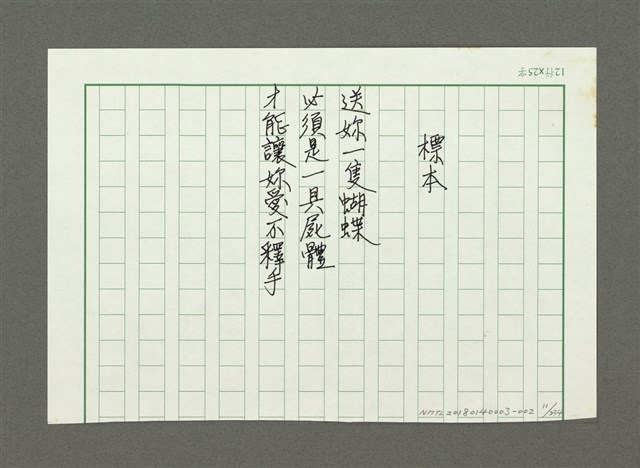 12行×25字
標本
送妳一隻蝴蝶
必須是一具屍體
才能讓妳愛不釋手
NMTL20180140003-002